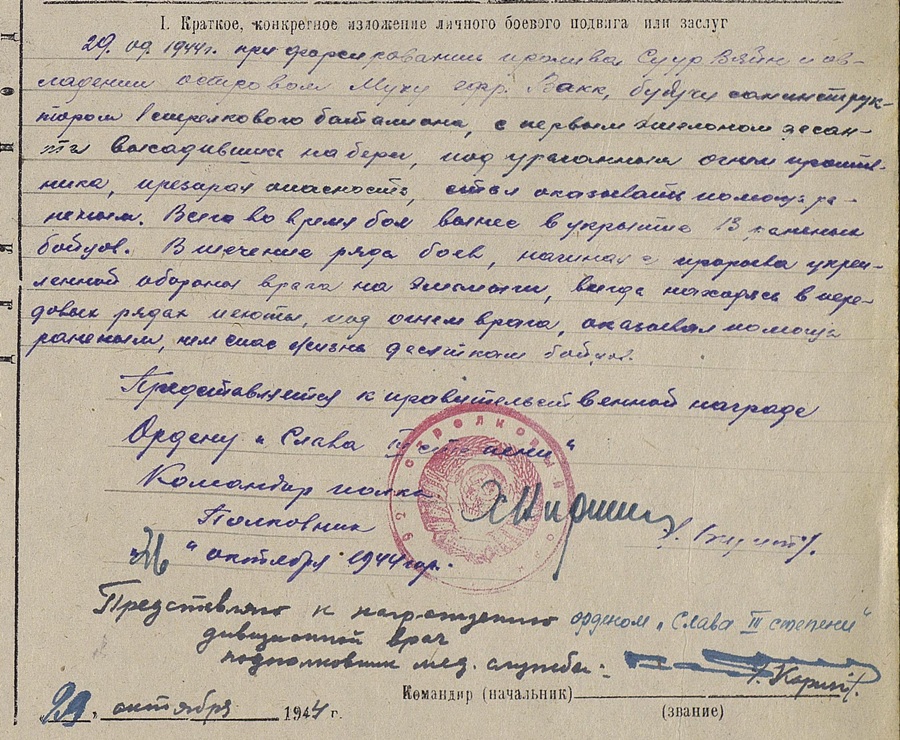 I. Краткое, конкретное изложение личного боевого подвига или заслуг
29. 09. 1944г. при форсировании пролива Суур Вяйн и ов-
ладении островом Муху ефр. Вакк, будучи санинструк-
тором 1 стрелкового баталиона, с первым эшелоном десан-
та высадившись на берег, под ураганным огнем против-
ника, презирая опасность, стал оказывать помощь ра-
неным. Всего во время боя вынес в укрытие 13 раненых
бойцов. В течение ряда боев, начиная с прорыва укреп-
ленной обороны врага на Эмайыги, всегда находясь в пере-
довых рядах пехоты, под огнем врага, оказывал помощь
раненым, чем спас жизнь десяткам бойцов.
Представляется к правительственной награде
Ордену „Слава III степени“
Командир полка
Полковник
„ “ октября 1944 гор.
Представляю к награждению орденом „Слава III степени“
дивизионный врач
подполковник мед. службы:
Командир (начальник)
29 „ октября 1944 г.
(звание)